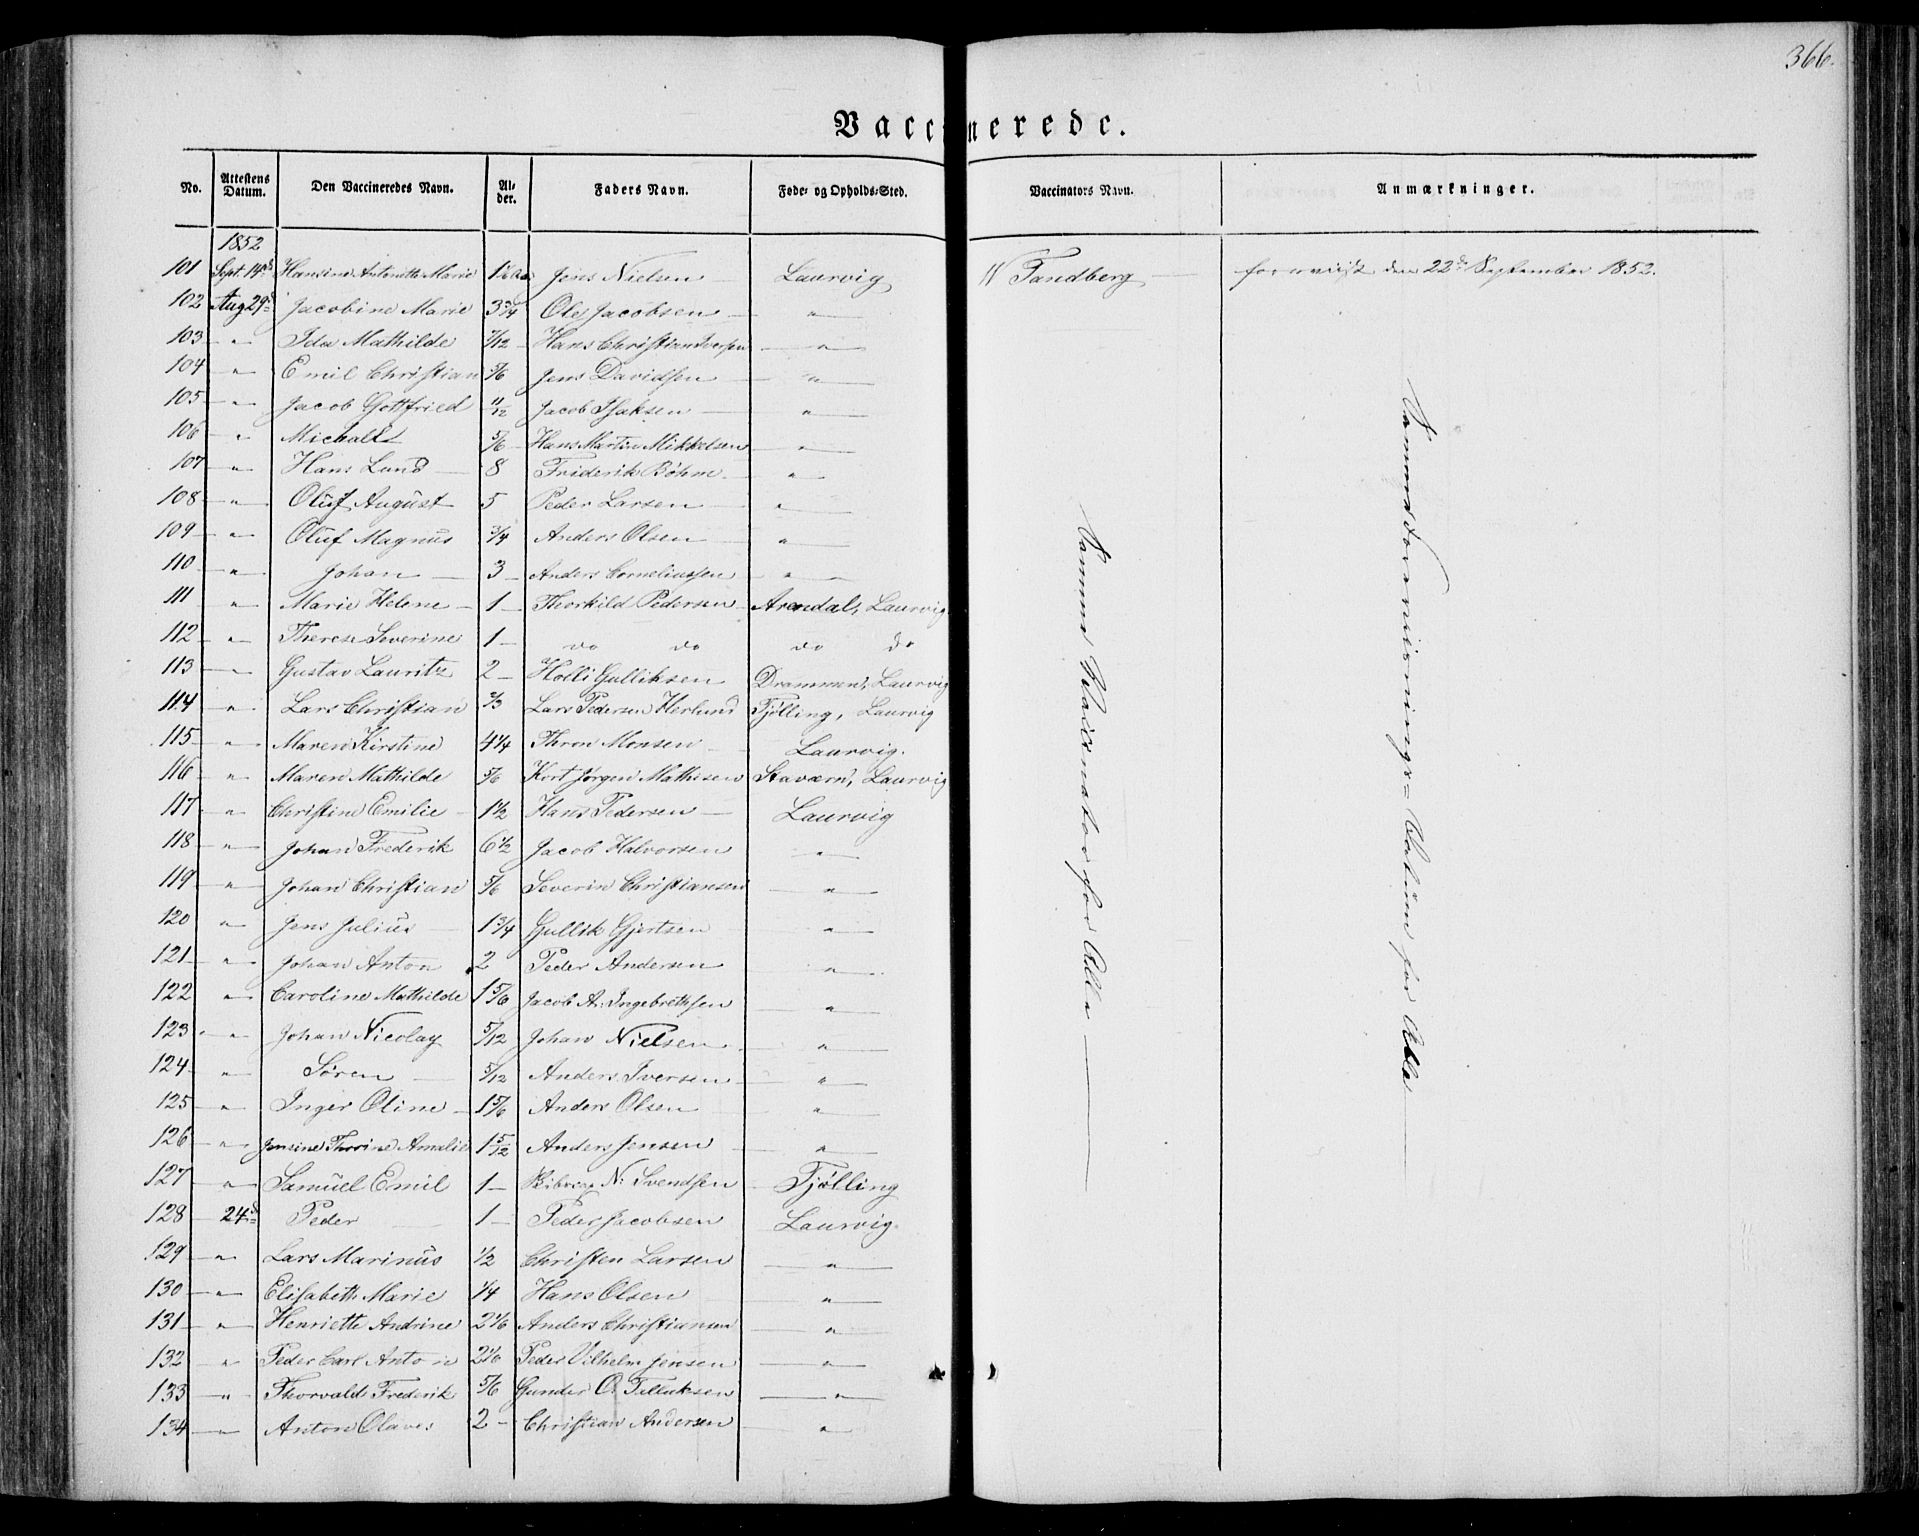 366.
Vaccinerede.
No. Attestens Datum. Den Vaccineredes Navn. Alder. Faders Navn. Føde- og Opholds-Sted. Vaccinators Navn. Anmærkninger.
1852
101 Sept. 14d Hansine Antonette Marie Jens Nielsen Laurvig Tandberg foreviist den 22d September 1852.
102 Aug 29d Jacobine Marie 3 3/4 Ole Jacobsen "
103 " Ida Mathilde 7/12 Hans Christian Iversen "
104 " Emil Christian 5/6 Jens Davidsen "
105 " Jacob Gottfried 11/12 Jacob Isaksen "
106 " 5/6 Hans Martin Mikkelsen "
107 " Hans Lund 8 Friderik Bøhm "
108 " Oluf August 5 Peder Larsen "
109 " Oluf Magnus 3/4 Anders Olsen "
110 " Johan 3 Anders Corneliussen "
111 " Marie Helene 1 Thorkild Pedersen Arendal, Laurvig
112 " Therese Severine 1 do do do do
113 " Gustav Lauritz 2 Gulliksen Drammen, Laurvig
114 " Lars Christian 2/3 Lars Pedersen Herlund Fjølling, Laurvig
115 " Maren Kirstine 4 1/4 Thron Monsen Laurvig.
116 " Maren Mathilde 5/6 Kort Jørgen Mathisen Staværn, Laurvig
117 " Christine Emilie 1 1/2 Hans Pedersen Laurvig
118 " Johan Frederik 6 1/2 Jacob Halvorsen "
119 " Johan Christian 5/6 Severin Christiansen "
120 " Jens Julius 1 3/4 Gullik Gjertsen "
121 " Johan Anton 2 Peder Andersen "
122 " Caroline Mathilde 1 5/6 Jacob A. Ingebrethsen "
123 " Johan Nicolay 5/12 Johan Nielsen "
124 " Søren 5/12 Anders Iversen "
125 " Inger Oline 1 5/6 Anders Olsen "
126 " Jensine Thorine Amalie 1 5/12 Anders Jensen "
127 " Samuel Emil 1 N. Svendsen Fjølling
128 24d Peder 1 Peder Jacobsen Laurvig
129 " Lars Marinus 1/2 Christen Larsen "
130 " Elisabeth Marie 1/4 Hans Olsen "
131 " Henriette Andrine 2 1/6 Anders Christiansen "
132 " Peder Carl Anton 2 1/6 Peder Vilhelm Jensen "
133 " Thorvald Frederik 5/6 Gunder O. Tellieksen "
134 " Anton Olaves 2 Christian Andersen "
Samme Vaccinator for Alle
Samme Foreviisnings-Datum for Alle